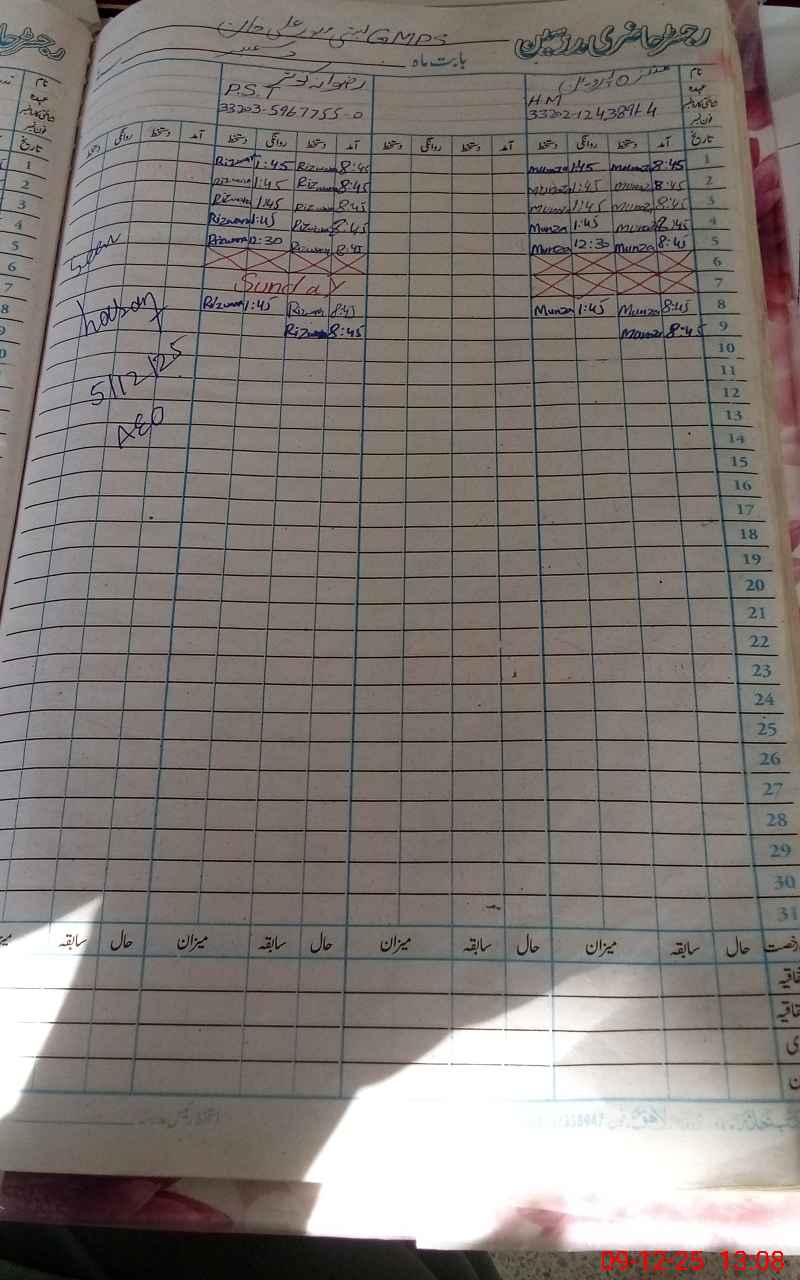 رجسٹر حاضری مدرسین
GMPS بستی
بابت ماہ دسمبر
نام
عہدہ H.M P.S.T رضوانہ کوثر
33202-1243896-4 33203-5967755-0
تاریخ آمد دستخط روانگی دستخط آمد دستخط روانگی دستخط آمد دستخط روانگی دستخط دستخط روانگی دستخط
1 8:45 Munza 1:45 Munza 8:45 Rizwana 1:45 Rizwana
2 8:45 Munza 1:45 Munza 8:45 Rizwana 1:45 Rizwana
3 8:45 Munza 1:45 Munza 8:45 Rizwana 1:45 Rizwana
4 8:45 Munza 1:45 Munza 8:45 Rizwana 1:45 Rizwana
5 8:45 Munza 12:30 Munza 8:45 Rizwana 12:30 Rizwana
6
7 Sunday
8 8:45 Munza 1:45 Munza 8:45 Rizwana 1:45 Rizwana
9 8:45 Munza 8:45 Rizwana
10
11
12
13
14
15
16
17
18
19
20
21
22
23
24
25
26
27
28
29
30
31
Seen
5/12/25
AEO
رخصت حال سابقہ میزان حال سابقہ میزان حال سابقہ میزان حال سابقہ
09-12-25 13:08